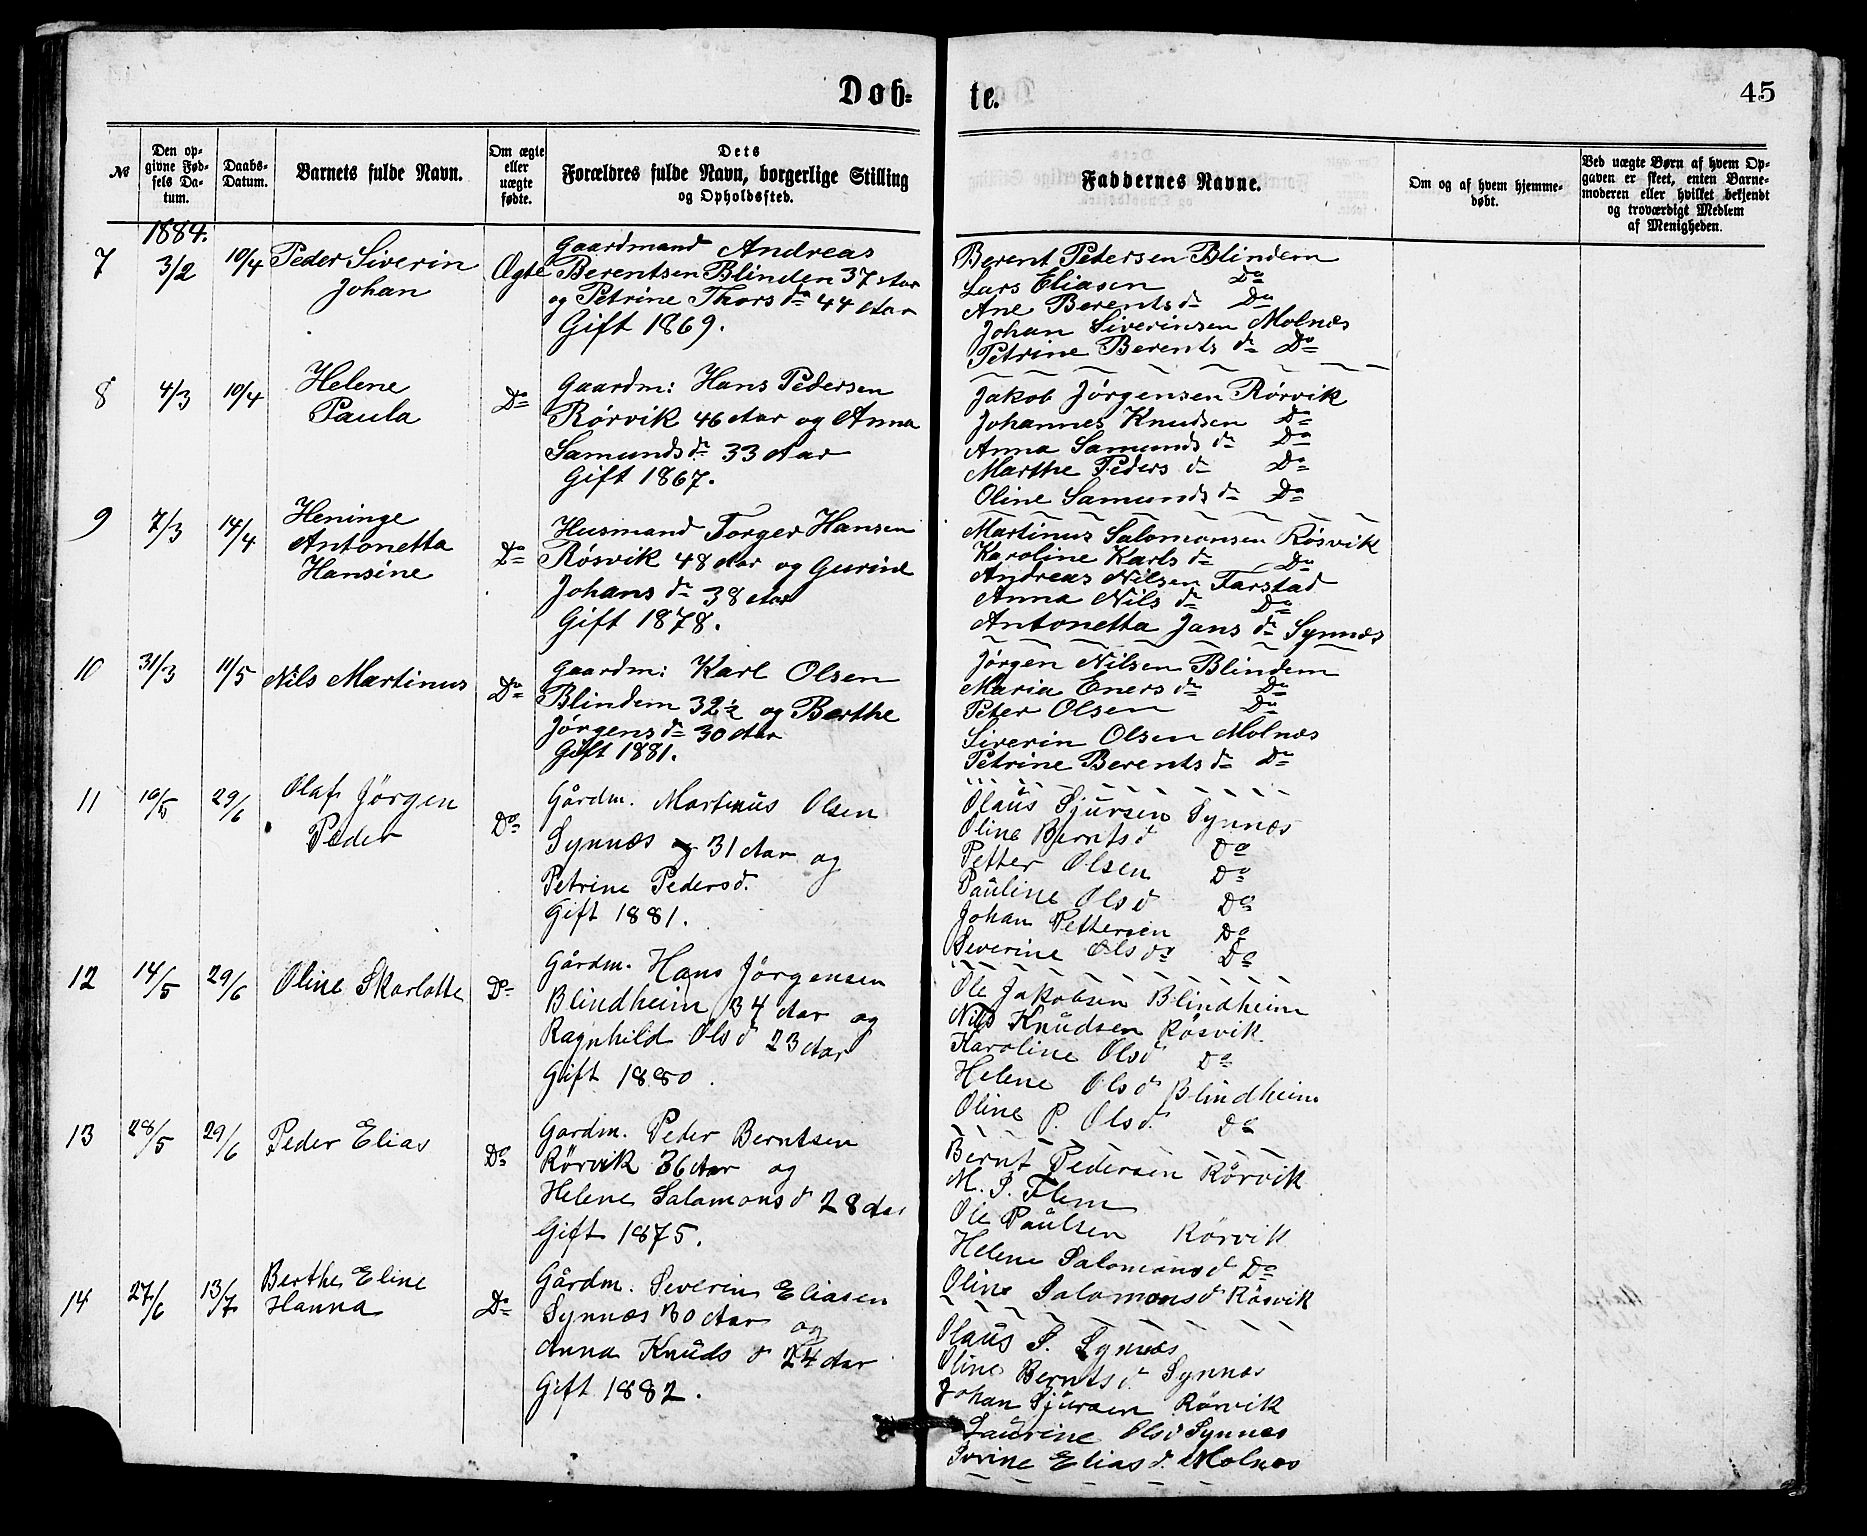 Døb-
te.
45
№
Den op-
givne Fød-
sels Da-
tum.
Daabs-
Datum.
Barnets fulde Navn.
Om ægte
eller
uægte
fødte.
Dets
Forældres fulde Navn, borgerlige Stilling
og Opholdssted.
Faddernes Navne.
Om og af hvem hjemme-
døbt.
Ved uægte Børn af hvem Op-
gaven er skeet, enten Barne-
moderen eller hvilket bekjendt
og troværdigt Medlem
af Menigheden.
1884.
7
3/2
10/4
Peder Siverin
Johan
Ægte
Gaardmand Andreas
Berentsen Blinden 37 Aar
og Petrine Thors dr 44 Aar
Gift 1869.
Berent Petersen Blindem
Lars Eliasen Do
Ane Berents dr Do
Johan Siverinsen Molnæs
Petrine Berents dr Do
8
4/3
10/4
Helene
Paula
Do
Gaardm: Hans Pedersen
Rörvik 46 Aar og Anna
Samunds dr 33 Aar
Gift 1867.
Jakob Jörgensen Rörvik
Johannes Knudsen Do
Anna Samunds dr Do
Marthe Peders dr Do
Oline Samunds dr Do
9
7/3
14/4
Heninge
Antonetta
Hansine
Do
Husmand Torger Hansen
Rösvik 48 Aar og Gurine
Johans dr 38 Aar
Gift 1878.
Martinus Salomonsen Rösvik
Karoline Karls dr Do
Andreas Nilsen Farstad
Anna Nils dr Do
Antonetta Jans dr Synnæs
10
31/3
11/5
Nils Martinus
Do
Gaardm: Karl Olsen
Blindem 32½ og Berthe
Jörgens dr 30 Aar
Gift 1881.
Jörgen Nilsen Blindem
Maria Eners dr Do
Peter Olsen Do
Siverin Olsen Molnæs
Petrine Berents dr Do
11
10/5
29/6
Olaf Jörgen
Peder
Do
Gårdm. Martinus Olsen
Synnæs og 31 Aar og
Petrine Pedersd.
Gift 1881.
Olaus Sjursen Synnæs
Oline Berntsd Do
Petter Olsen Do
Pauline Olsd Do
Johan Pettersen Do
Severine Olsdr Do
12
14/5
29/6
Oline Skarlotte
Do
Gårdm. Hans Jörgensen
Blindheim 34 Aar og
Ragnhild Olsd 23 Aar
Gift 1880.
Ole Jakobsen Blindheim
Nils Knudsen Rösvik
Karoline Olsd Do
Helene Olsd Blindheim
Oline P. Olsd. Do
13
28/5
29/6
Peder Elias
Do
Gardm. Peder Berntsen
Rörvik 36 Aar og
Helene Salamonsd 28 Aar
Gift 1875.
Bernt Pedersen Rörvik
M. S. Flem
Ole Paulsen Rörvik
Helene Salomonsd Do
Oline Salomonsd Rösvik
14
27/6
13/7
Berthe Eline
Hanna
Do
Gårdm. Severin Eliasen
Synnæs 30 Aar og
Anna Knuds d 24 Aar
Gift 1882.
Olaus S. Synæs
Oline Bernts d. Synnæs
Johan Sjursen Rörvik
Laurine Olsd Synnæs
Sverine Elias d. Molnæs